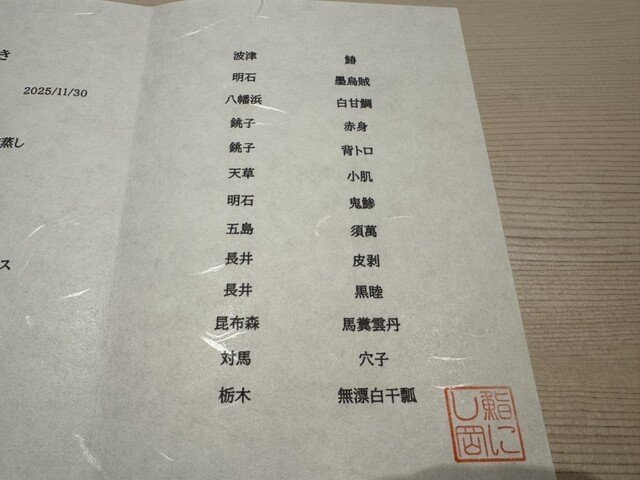 き
2025/11/30
蒸し
ス
波津 鰆
明石 墨烏賊
八幡浜 白甘鯛
銚子 赤身
銚子 背トロ
天草 小肌
明石 鬼鯵
五島 須萬
長井 皮剥
長井 黒睦
昆布森 馬糞雲丹
対馬 穴子
栃木 無漂白干瓢
鮨に
し岡